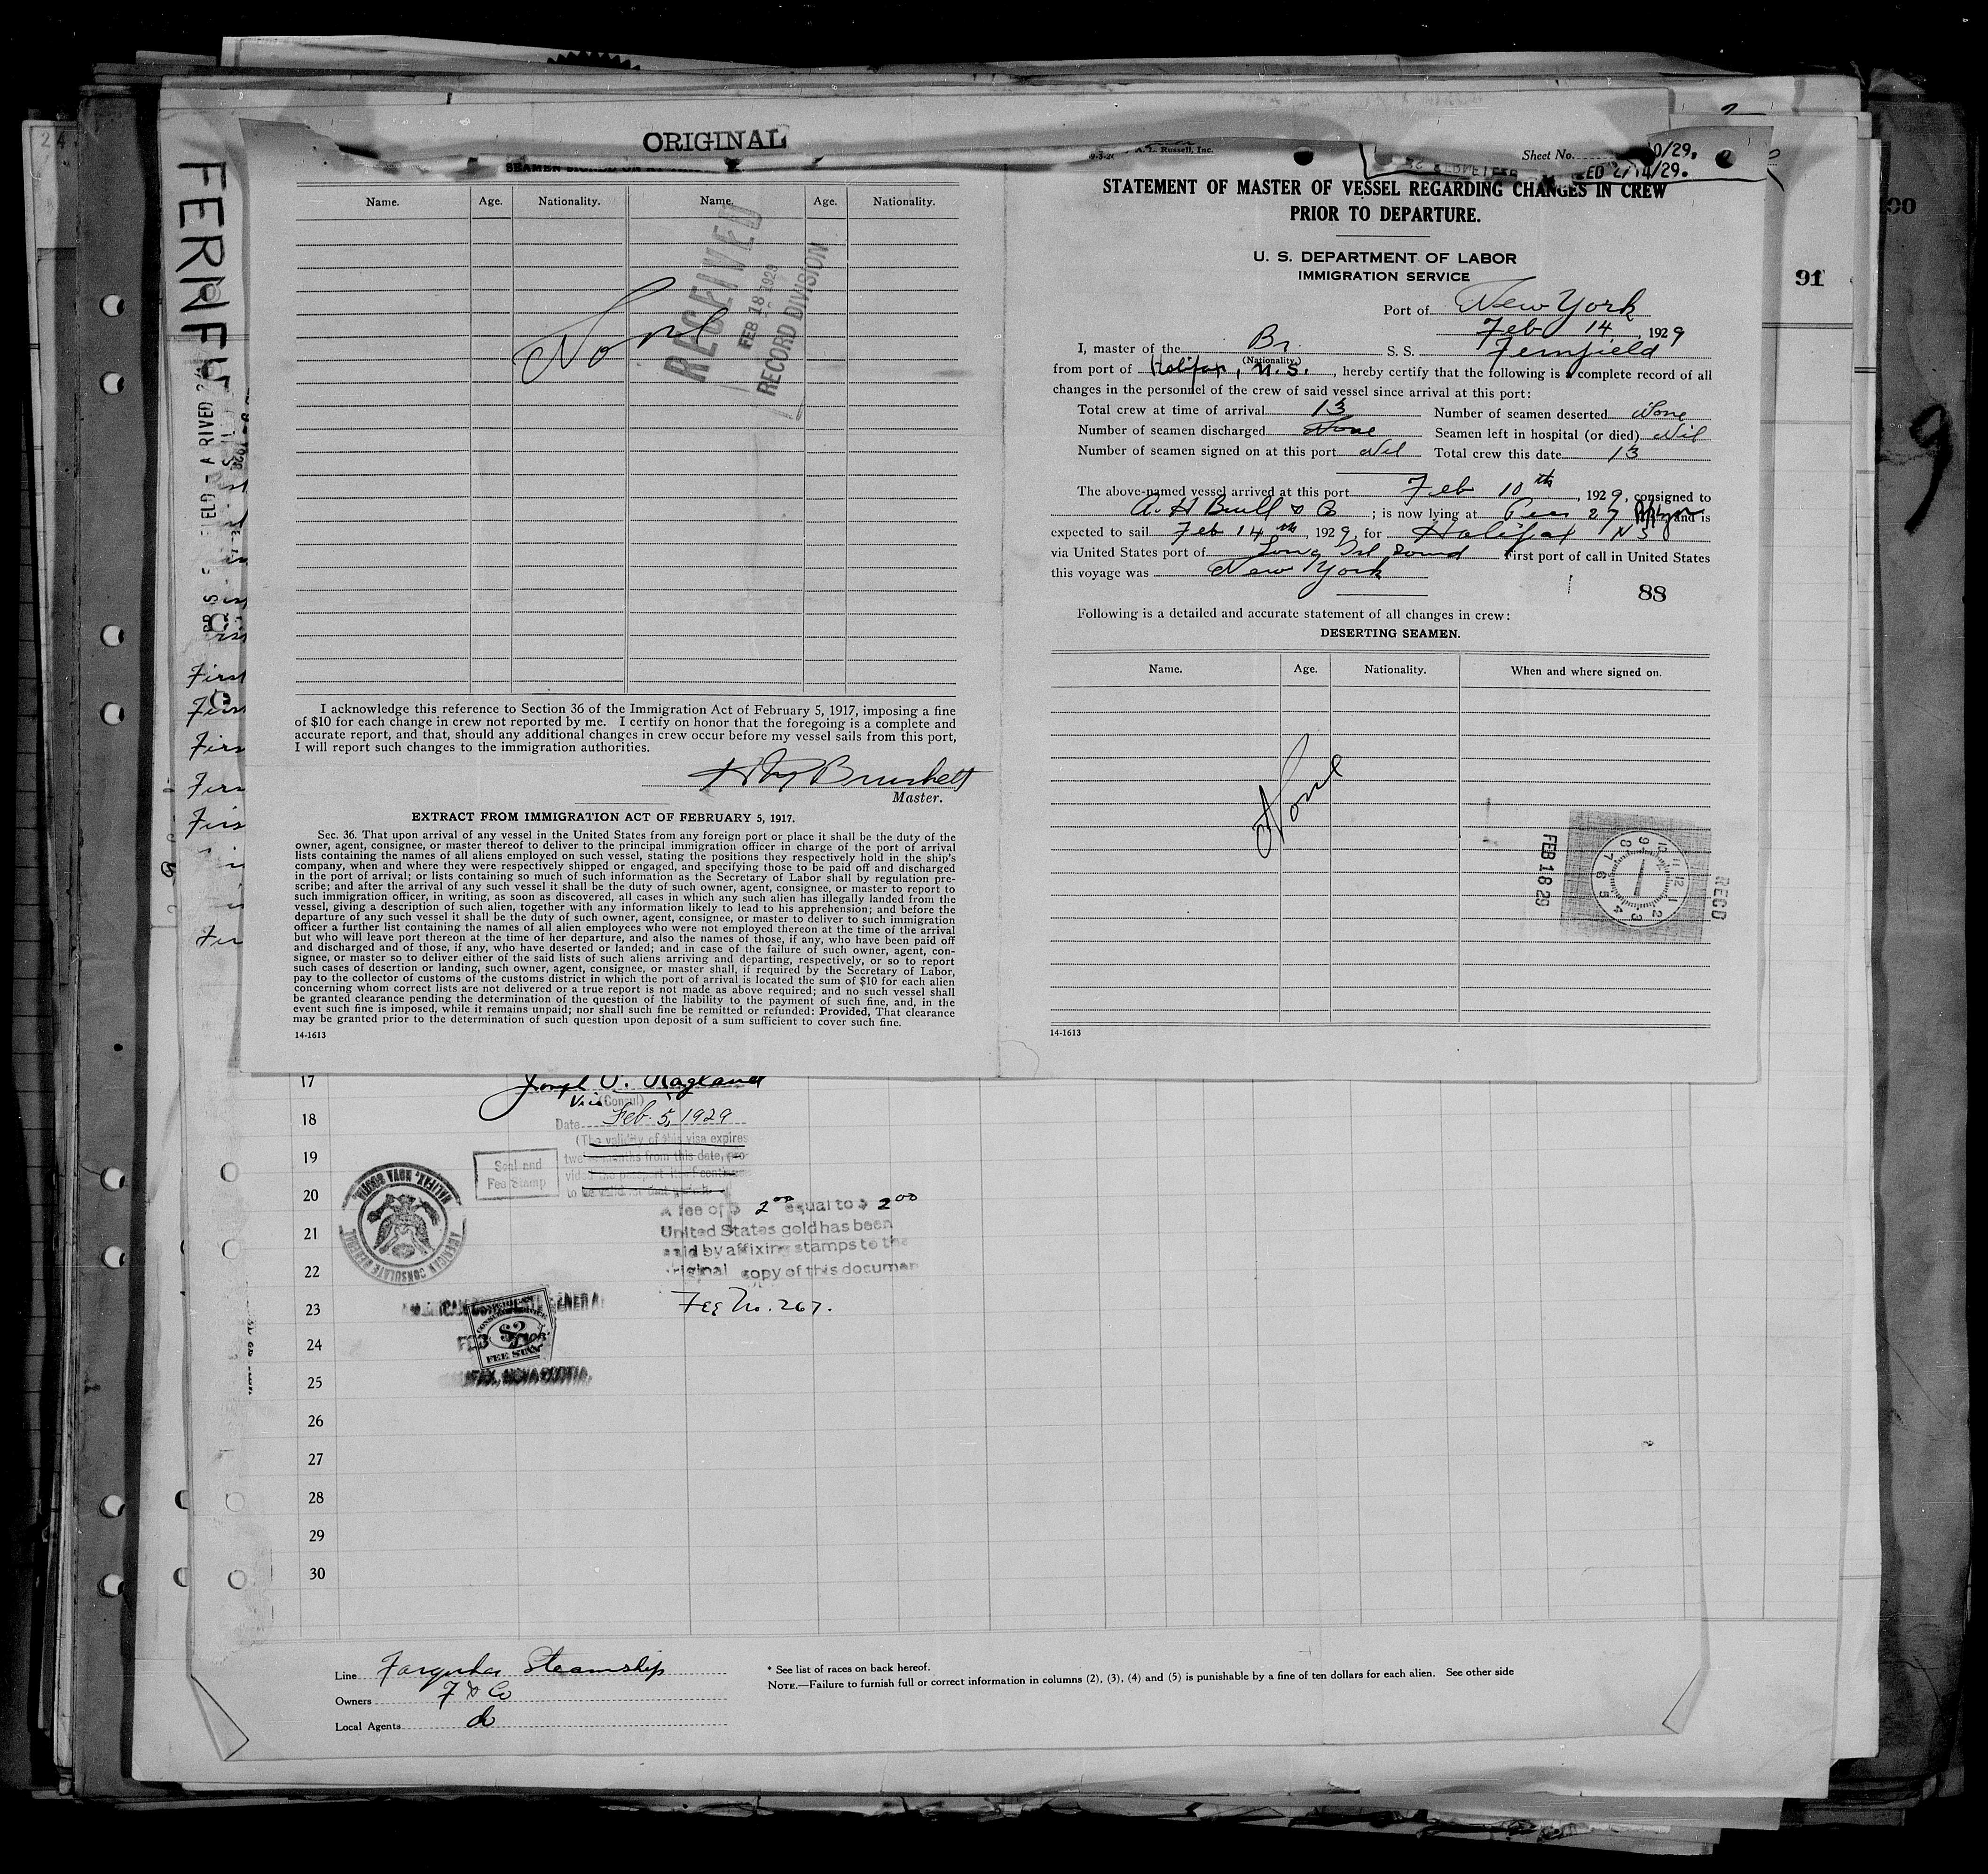 ORIGINAL
Name. Age. Nationality. Name. Age. Nationality.
None
RECEIVED
FEB 18 1929
RECORD DIVISION
I acknowledge this reference to Section 36 of the Immigration Act of February 5, 1917, imposing a fine
of $10 for each change in crew not reported by me. I certify on honor that the foregoing is a complete and
accurate report, and that, should any additional changes in crew occur before my vessel sails from this port,
I will report such changes to the immigration authorities.
Master.
EXTRACT FROM IMMIGRATION ACT OF FEBRUARY 5, 1917.
Sec. 36. That upon arrival of any vessel in the United States from any foreign port or place it shall be the duty of the
owner, agent, consignee, or master thereof to deliver to the principal immigration officer in charge of the port of arrival
lists containing the names of all aliens employed on such vessel, stating the positions they respectively hold in the ship's
company, when and where they were respectively shipped or engaged, and specifying those to be paid off and discharged
in the port of arrival; or lists containing so much of such information as the Secretary of Labor shall by regulation pre-
scribe; and after the arrival of any such vessel it shall be the duty of such owner, agent, consignee, or master to report to
such immigration officer, in writing, as soon as discovered, all cases in which any such alien has illegally landed from the
vessel, giving a description of such alien, together with any information likely to lead to his apprehension; and before the
departure of any such vessel it shall be the duty of such owner, agent, consignee, or master to deliver to such immigration
officer a further list containing the names of all alien employees who were not employed thereon at the time of the arrival
but who will leave port thereon at the time of her departure, and also the names of those, if any, who have been paid off
and discharged and of those, if any, who have deserted or landed; and in case of the failure of such owner, agent, con-
signee, or master so to deliver either of the said lists of such aliens arriving and departing, respectively, or so to report
such cases of desertion or landing, such owner, agent, consignee, or master shall, if required by the Secretary of Labor,
pay to the collector of customs of the customs district in which the port of arrival is located the sum of $10 for each alien
concerning whom correct lists are not delivered or a true report is not made as above required; and no such vessel shall
be granted clearance pending the determination of the question of the liability to the payment of such fine, and, in the
event such fine is imposed, while it remains unpaid; nor shall such fine be remitted or refunded: Provided, That clearance
may be granted prior to the determination of such question upon deposit of a sum sufficient to cover such fine.
14-1613
A. L. Russell, Inc.
Sheet No.
0/29.
ED 2/14/29.
STATEMENT OF MASTER OF VESSEL REGARDING CHANGES IN CREW
PRIOR TO DEPARTURE.
U. S. DEPARTMENT OF LABOR
IMMIGRATION SERVICE
Port of New York
Feb 14, 1929
I, master of the Br. S. S. Fernfield
(Nationality.)
from port of Halifax, N.S., hereby certify that the following is a complete record of all
changes in the personnel of the crew of said vessel since arrival at this port:
Total crew at time of arrival 13 Number of seamen deserted None
Number of seamen discharged None Seamen left in hospital (or died) Nil
Number of seamen signed on at this port Nil Total crew this date 13
The above-named vessel arrived at this port Feb 10th, 1929, consigned to
A. H Bull & Co; is now lying at Pier 27 Bklyn and is
expected to sail Feb 14th, 1929, for Halifax NS
via United States port of Long Isl Sound First port of call in United States
this voyage was New York
88
Following is a detailed and accurate statement of all changes in crew:
DESERTING SEAMEN.
Name. Age. Nationality. When and where signed on.
None
FEB 18 29
RECD
14-1613
91
9
FERNF
17
18
19
20
21
22
23
24
25
26
27
28
29
30
Vice (Consul)
Date Feb. 5, 1929
(The validity of this visa expires
Seal and
Fee Stamp
AMERICAN CONSULATE GENERAL
HALIFAX, NOVA SCOTIA.
A fee of $ 2 00 equal to $ 2 00
United States gold has been
paid by affixing stamps to the
original copy of this document
Fee No. 267.
$2
FEE STAMP
Line Farquhar Steamship
Owners F & Co
Local Agents do
* See list of races on back hereof.
NOTE.—Failure to furnish full or correct information in columns (2), (3), (4) and (5) is punishable by a fine of ten dollars for each alien. See other side